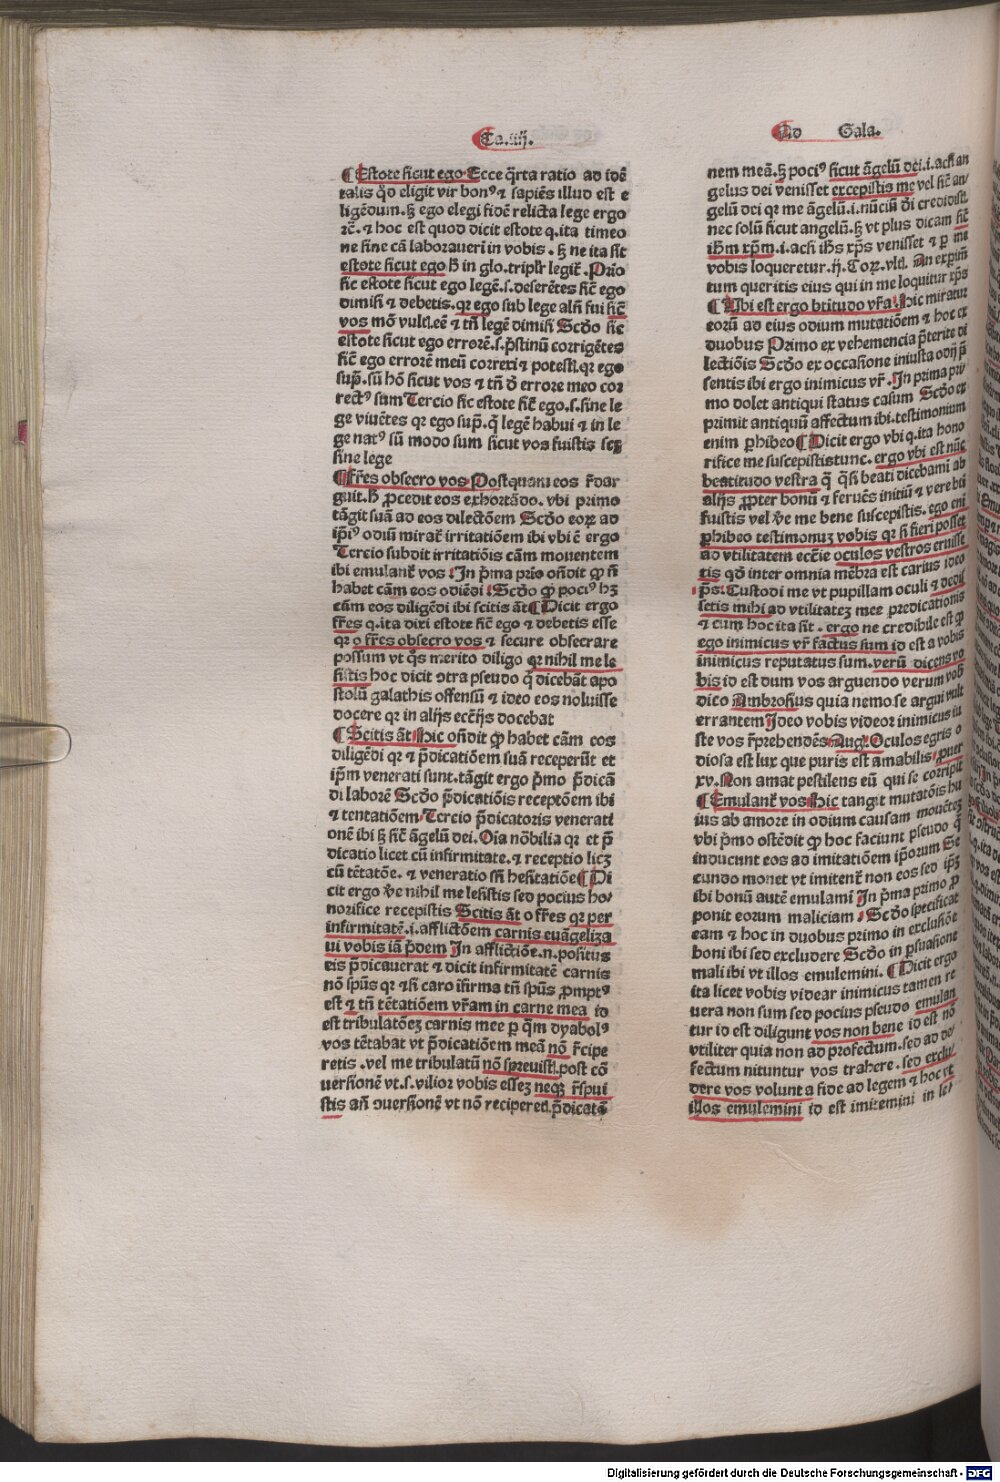 Ca.iiij.
¶Estote sicut ego Ecce q̄rta ratio ad idē
talis qd̓ eligit vir bonꝰ ⁊ sapiēs illud est e
ligēdum. sꝫ ego elegi fidē relicta lege ergo
ꝛc̄. ⁊ hoc est quod dicit estote q. ita timeo
ne sine cā laborauerī in vobis . sꝫ ne ita sit
estote sicut ego H̄ in glo. triplr̄ legit̄ . Prīo
sic estote sicut ego legē.s. deserētes sic̄ ego
dimisi ⁊ debetis. qꝛ ego sub lege aln̄ fui sic̄
vos mō vult. eē ⁊ tn̄ legē dimisi Scd̓o sic
estote sicut ego errorē.s. p̄stinū corrigētes
sic̄ ego errorē meū correxi ⁊ potest. qꝛ ego
sup̄. sū hō sicut vos ⁊ tn̄ d̓ errore meo cor
rectꝰ sum Tercio sic estote sic̄ ego.s. sine le
ge viuētes qꝛ ego sup̄. q̄ legē habui ⁊ in le
ge natꝰ sū modo sum sicut vos fuistis scꝫ
sine lege
¶Fr̄es obsecro vos Postquam eos r̄dar
guit. H̄ ꝓcedit eos exhortādo. vbi primo
tāgit suā ad eos dilectōem Scd̓o eoꝝ ad
ip̄iꝰ odiū mirat̄ irritatiōem ibi vbi ē ergo
Tercio subdit irritatiōis cām mouentem
ibi emulant̄ vos In p̄ma prīo on̄dit ꝙ nō
habet cām eos odiēdi Scd̓o ꝙ pociꝰ hꝫ
cām eos diligēdi ibi scitis āt ¶Dicit ergo
fr̄es q. ita dixi estote sic̄ ego ⁊ debetis esse
qꝛ o fr̄es obsecro vos ⁊ secure obsecrare
possum vt q̄s merito diligo qꝛ nihil me le
sistis hoc dicit ↄtra pseudo q̄ dicebāt apo
stolū galathis offensū ⁊ ideo eos noluisse
docere qꝛ in alijs ecc̄ijs docebat
¶Scitis āt Hic on̄dit ꝙ habet cām eos
diligēdi qꝛ ⁊ p̄dicatiōem suā receperūt et
ip̄m venerati sunt. tāgit ergo p̄mo p̄dicā
di laborē Scd̓o p̄dicatiōis receptōem ibi
⁊ tentatiōem Tercio p̄dicatoris venerati
onē ibi sꝫ sic̄ āgelū dei. Oīa nōbilia qꝛ et p̄
dicatio licet cū infirmitate. ⁊ receptio licꝫ
cū tētatōe. ⁊ veneratio sn̄ hesitatiōe ¶Di
cit ergo vē nihil me lesistis sed pocius ho/
norifice recepistis Scitis āt o fr̄es qꝛ per
infirmitatē.i. afflictōem carnis euāgeliza
ui vobis iā p̄dem In afflictiōe.n. positus
eis p̄dicauerat ⁊ dicit infirmitatē carnis
nō spūs qꝛ ⁊ si caro ifirma tn̄ spūs ꝓmptꝰ
est ⁊ tn̄ tētatiōem vr̄am in carne mea id
est tribulatōeꝫ carnis mee p̱ q̄m dyabolꝰ
vos tētabat vt p̄dicatiōem meā nō r̄cipe
retis . vel me tribulatū nō spreuist̄. post cō
uersionē vt.s. vilior vobis esseꝫ neqꝫ r̄spui
stis an̄ ↄuersionē vt nō reciperet̄. p̄dicatō
Ad Gala.
nem meā. sꝫ pociꝰ sicut āgelū dei.i. acsi an
gelus dei venisset excepistis me vel sic̄ an/
gelū dei qꝛ me āgelū.i. nūciū d̓i credidist̄.
nec solū sicut angelū. sꝫ vt plus dicam sic̄
ihm̄ xp̄m.i. acsi ihs̄ xp̄s venisset ⁊ p̱ me
vobis loqueretur. ij. Coꝝ. vlt̄. An experim̄
tum queritis eius qui in me loquitur xp̄s
¶Vbi est ergo btitudo vr̄a. Hic miratur
eorū ad eius odium mutatiōem ⁊ hoc ex
duobus Primo ex vehemencia p̄terite di
lectiōis Scd̓o ex occasione iniusta odij p̄
sentis ibi ergo inimicus vr̄. In prima pri
mo dolet antiqui status casum Scd̓o ex
primit antiquū affectum ibi. testimonium
enim perhibeo ¶Dicit ergo vbi q. ita hono
rifice me suscepistis tunc. ergo vbi est nūc
beatitudo vestra q̄ q̄si beati dicebamī ab
alijs ꝓpter bonū ⁊ feruēs initiū ⁊ vere bti
fuistis vel vē me bene suscepistis. ego eni
ꝑhibeo testimoniuꝫ vobis qꝛ si fieri posset
ad vtilitatem ecc̄ie oculos vestros eruisse
tis qd̓ inter omnia mēbra est carius ideo
ps̄. Custodi me vt pupillam oculi ⁊ dedis
setis mihi ad vtilitateꝫ mee predicationis
⁊ cum hoc ita sit . ergo ne credibile est ꝙ
ego inimicus vr̄ factus sum id est a vobis
inimicus reputatus sum. verū dicens vo
bis id est dum vos arguendo verum vob̄
dico Ambrosius quia nemo se argui vult
errantem Ideo vobis videor inimicus iu
ste vos r̄prehendēs Aug. Oculos egris o
diosa est lux que puris est amabilis ꝓuer
xv. Non amat pestilens eū qui se corripit
¶Emulant̄ vos Hic tangit mutatōis hu
ius ab amore in odium causam mouēteꝫ
vbi p̄mo ostēdit ꝙ hoc faciunt pseudo q̄
inducunt eos ad imitatiōem ip̄orum Se
cundo monet vt imitent̄ non eos sed ip̄ꝫ
ibi bonū autē emulami In p̄ma primo ꝓ
ponit eorum maliciam Scd̓o specificat
eam ⁊ hoc in duobus primo in exclusiōe
boni ibi sed excludere Scd̓o in ꝑsuasione
mali ibi vt illos emulemini. ¶Dicit ergo
ita licet vobis videar inimicus tamen re
uera non sum sed pocius pseudo emulan
tur id est diligunt vos non bene id est nō
vtiliter quia non ad profectum. sed ad de/
fectum nituntur vos trahere. sed exclu/
dere vos volunt a fide ad legem ⁊ hoc vt
illos emulemini id est imitemini in le/
Digitalisierung gefördert durch die Deutsche Forschungsgemeinschaft - DFG